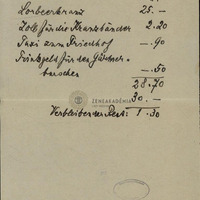 Lorbeerkranz 25.-
Zoll für die Kranzbänder 2.20
Taxi zum Friedhof -.90
Trinkgeld für den Gärtner-
burschen -.50
28.70
30.-
Verbleibender Rest: 1.30
ZENEAKADÉMIA